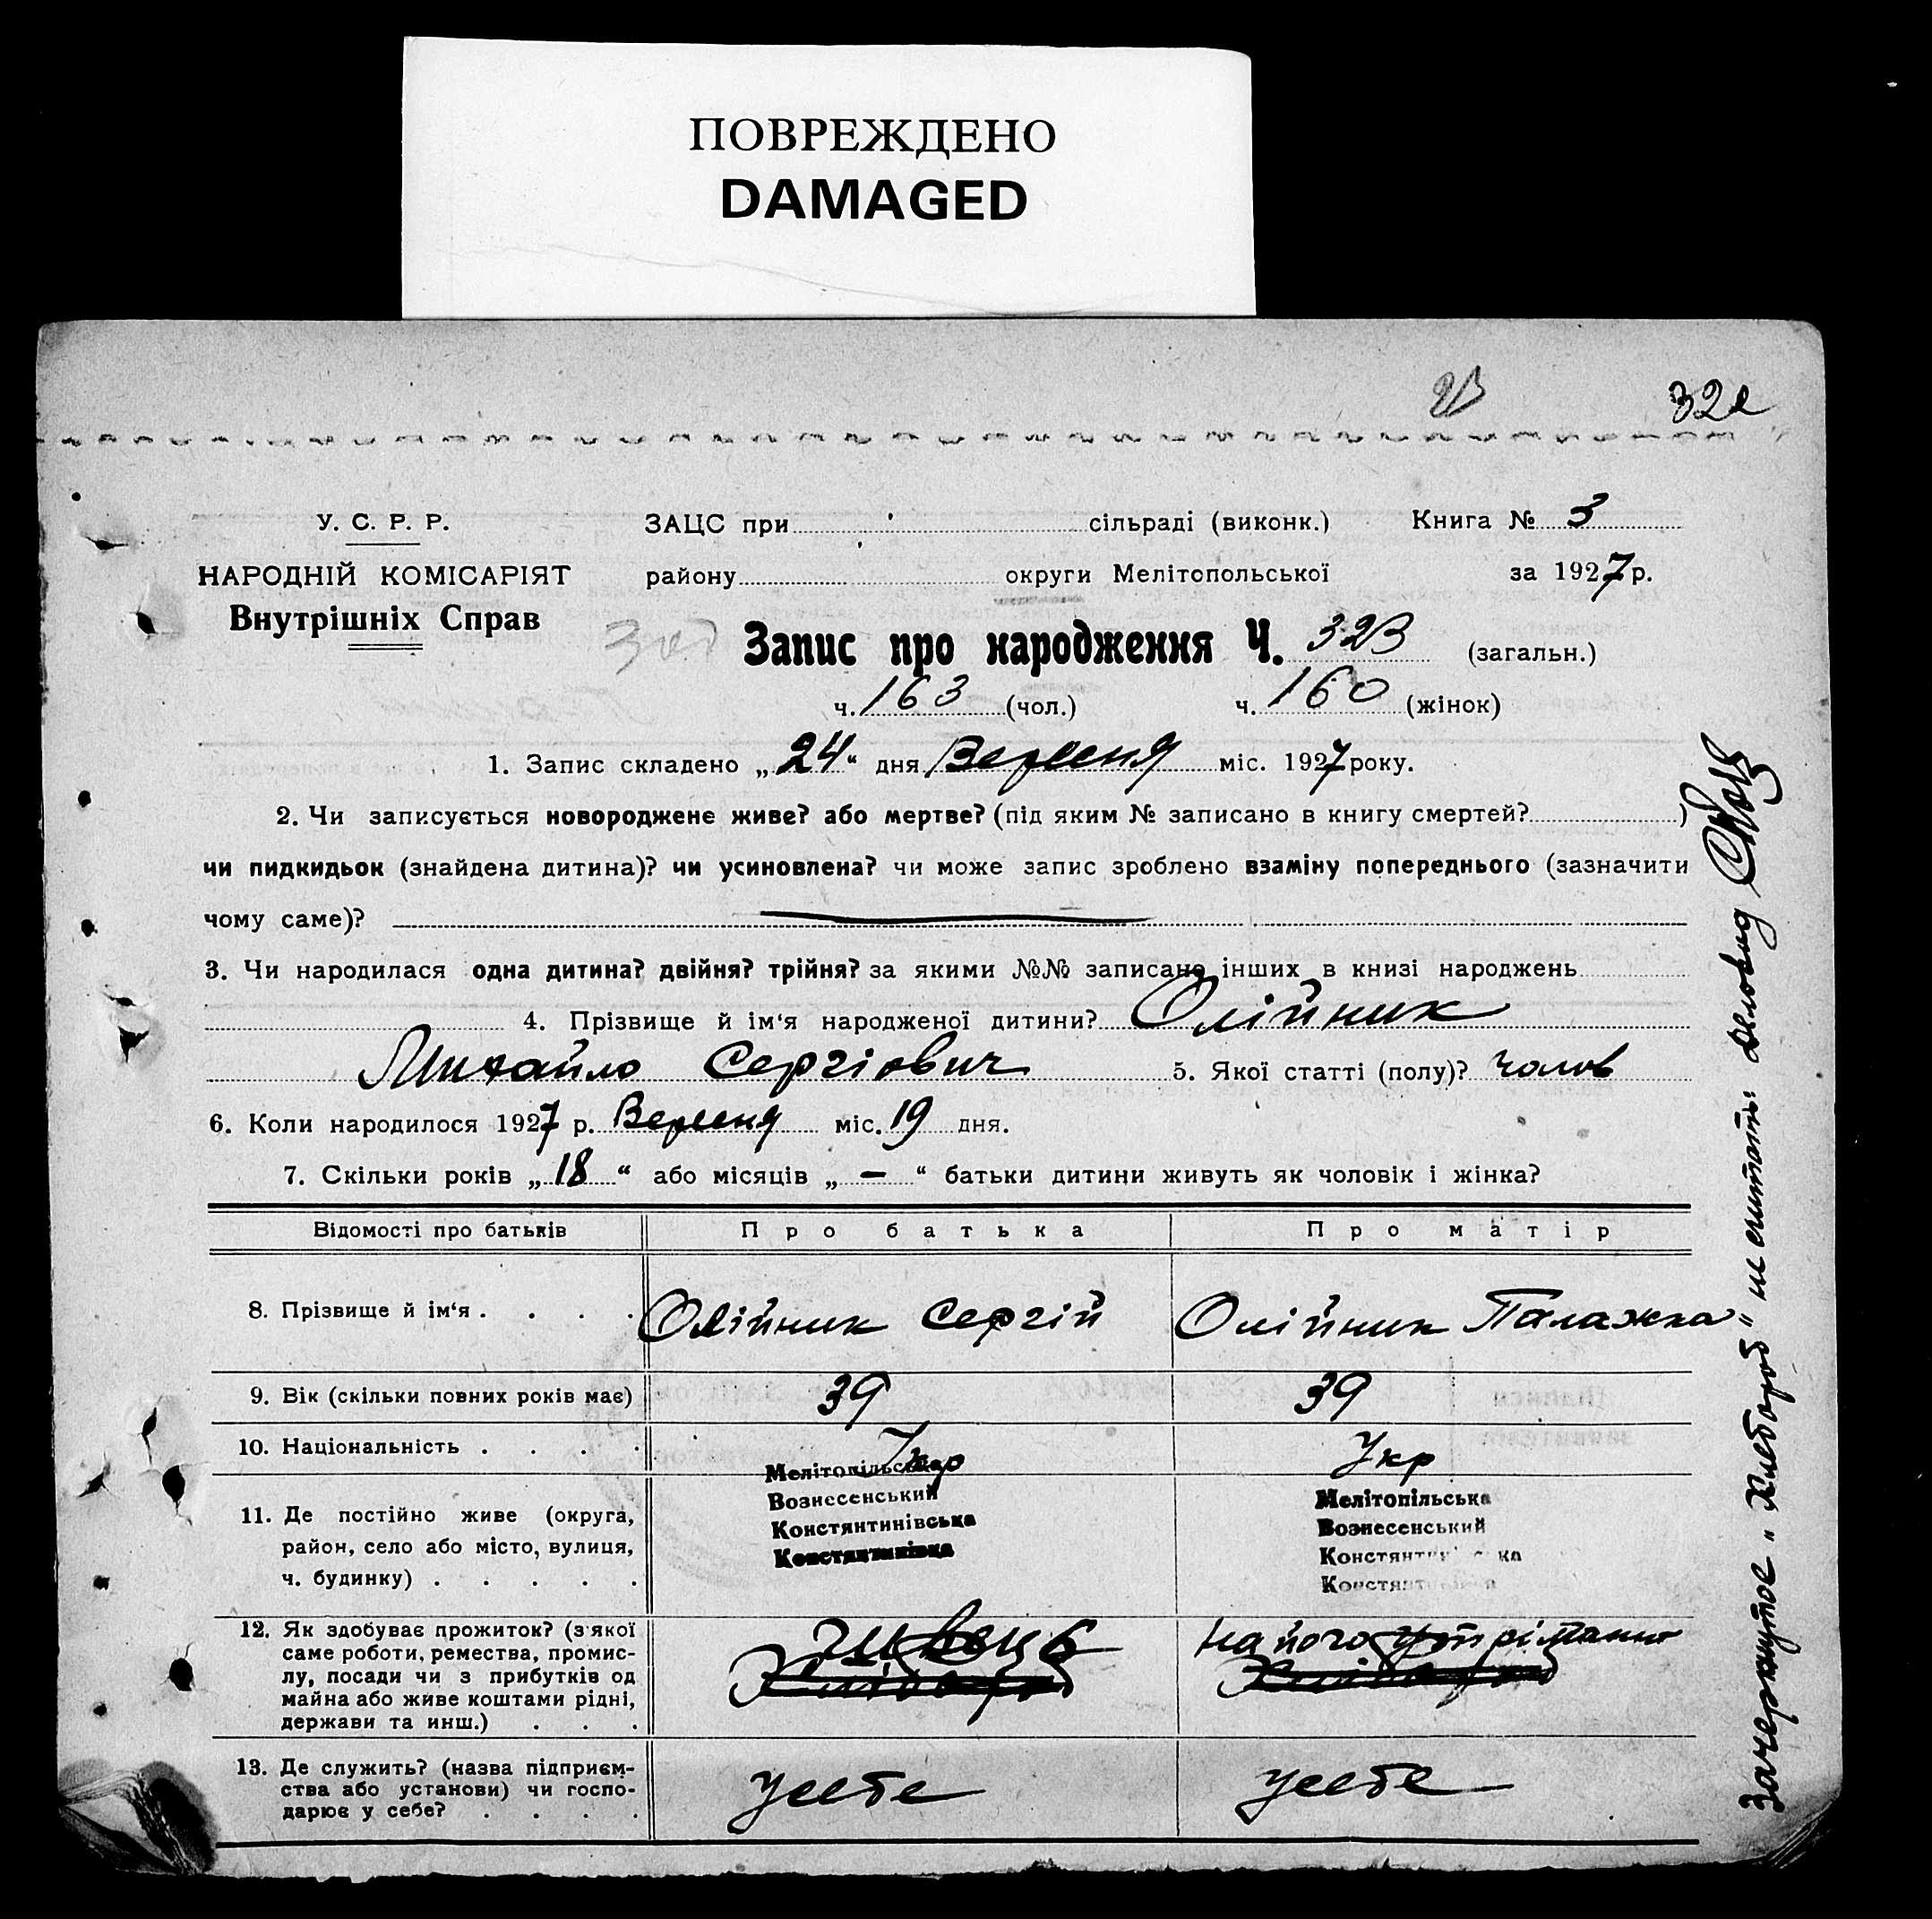 ПОВРЕЖДЕНО
DAMAGED
У. С. Р. Р.
НАРОДНІЙ КОМІСАРІЯТ
Внутрішніх Справ
ЗАЦС при сільраді (виконк.) Книга № 3
району округи Мелітопольської за 1927 р.
Запис про народження Ч. 323 (загальн.)
ч. 163 (чол.) ч. 160 (жінок)
1. Запис складено „24“ дня Вересня міс. 1927 року.
2. Чи записується новороджене живе? або мертве? (під яким № записано в книгу смертей? )
чи пидкидьок (знайдена дитина)? чи усиновлена? чи може запис зроблено взаміну попереднього (зазначити
чому саме)?
3. Чи народилася одна дитина? двійня? трійня? за якими №№ записано інших в книзі народжень
4. Прізвище й ім‘я народженої дитини? Олійник
Михайло Сергіович 5. Якої статті (полу)? чолов
6. Коли народилося 1927 р. Вересня міс. 19 дня.
7. Скільки років „18“ або місяців „—“ батьки дитини живуть як чоловік і жінка?
Відомості про батьків Про батька Про матір
8. Прізвище й ім‘я . . . . Олійник Сергій Олійник Палажка
9. Вік (скільки повних років має) 39 39
10. Національність . . . . Укр Укр
11. Де постійно живе (округа,
район, село або місто, вулиця,
ч. будинку) . . . . .
Мелітопільська
Вознесенський
Констянтинівська
Констянтинівка
Мелітопільська
Вознесенський
12. Як здобуває прожиток? (з якої
саме роботи, ремества, промис-
лу, посади чи з прибутків од
майна або живе коштами рідні,
держави та инш.) . . .
на його утріманні
13. Де служить? (назва підприєм-
ства або установи) чи госпо-
дарює у себе? . . . .
Усебе Усебе
Зачеркнутое „Хлебороб“ не считать: